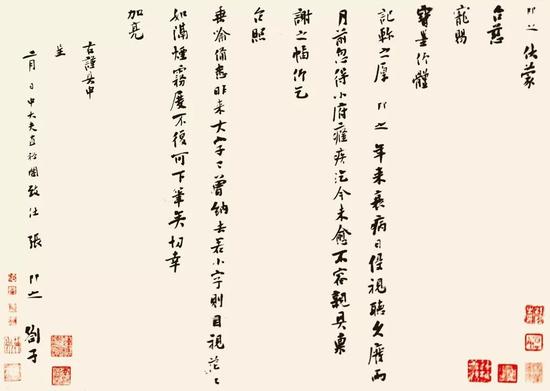 即之伏蒙
台慈
寵賜
寶墨竹醴
記軫之厚即之年來衰病日侵視聽久廢兩
月前忽得小府癃疾迄今未愈不容親具稟
謝之幅竹乞
台照
垂喻備悉昨來大字已曾納去若小字則目視茫々
如滿煙霧度不復可下筆矣切幸
加亮
右謹具申
呈
二月日中大夫直秘閣致仕張即之劄子